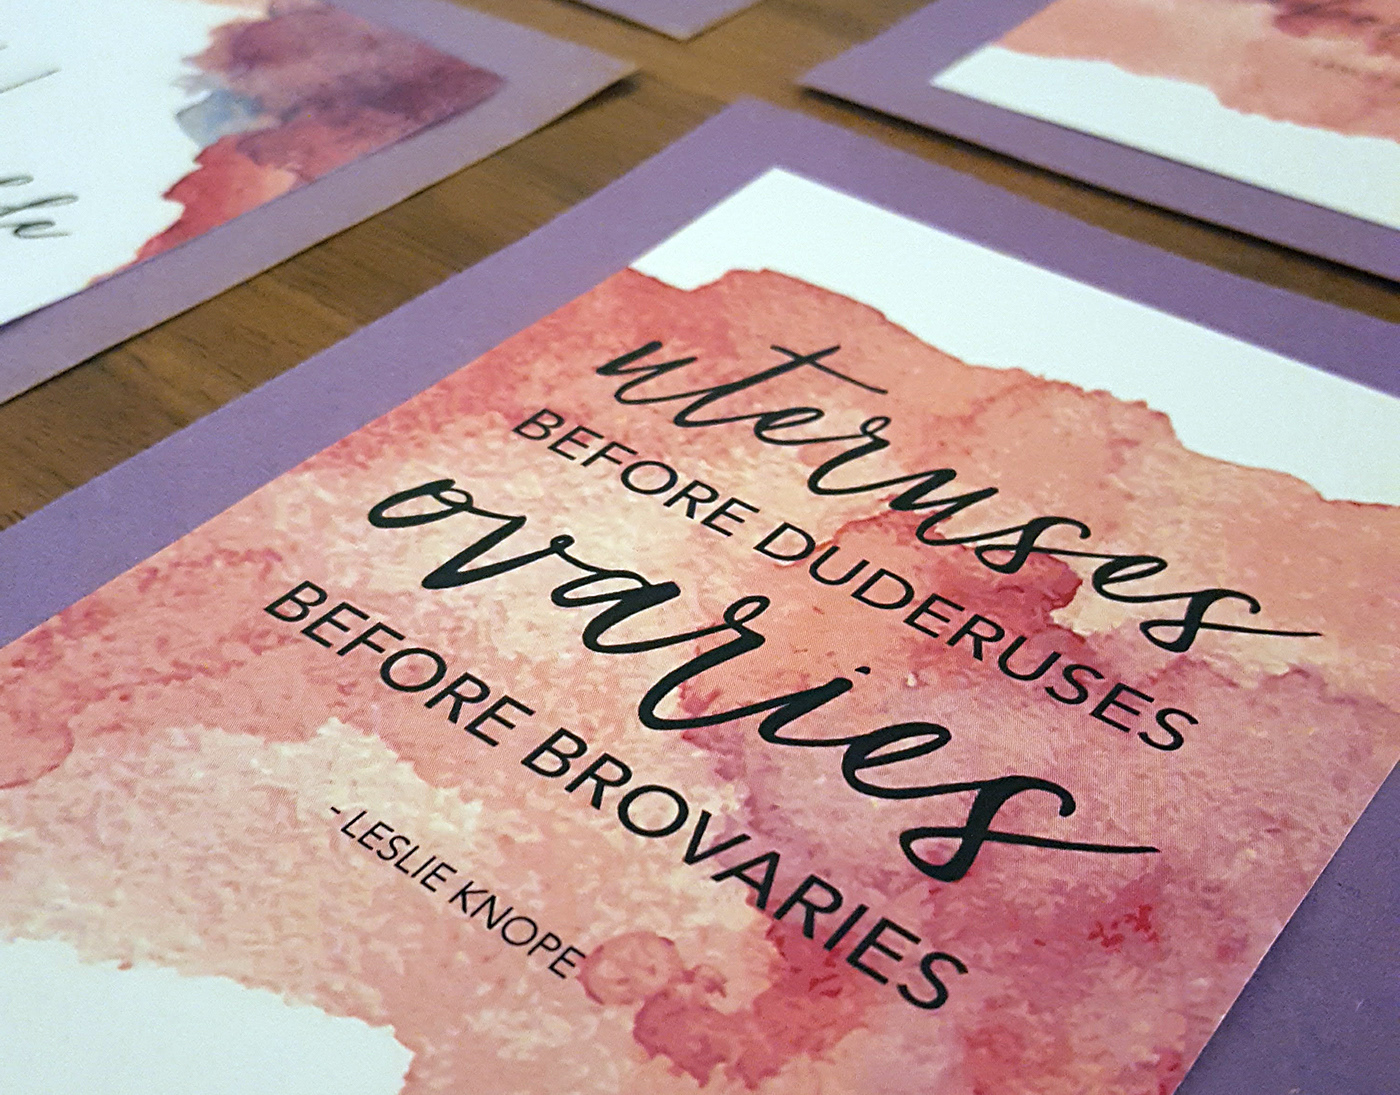 uteruses
BEFORE DUDERUSES
ovaries
BEFORE BROVARIES
-LESLIE KNOPE